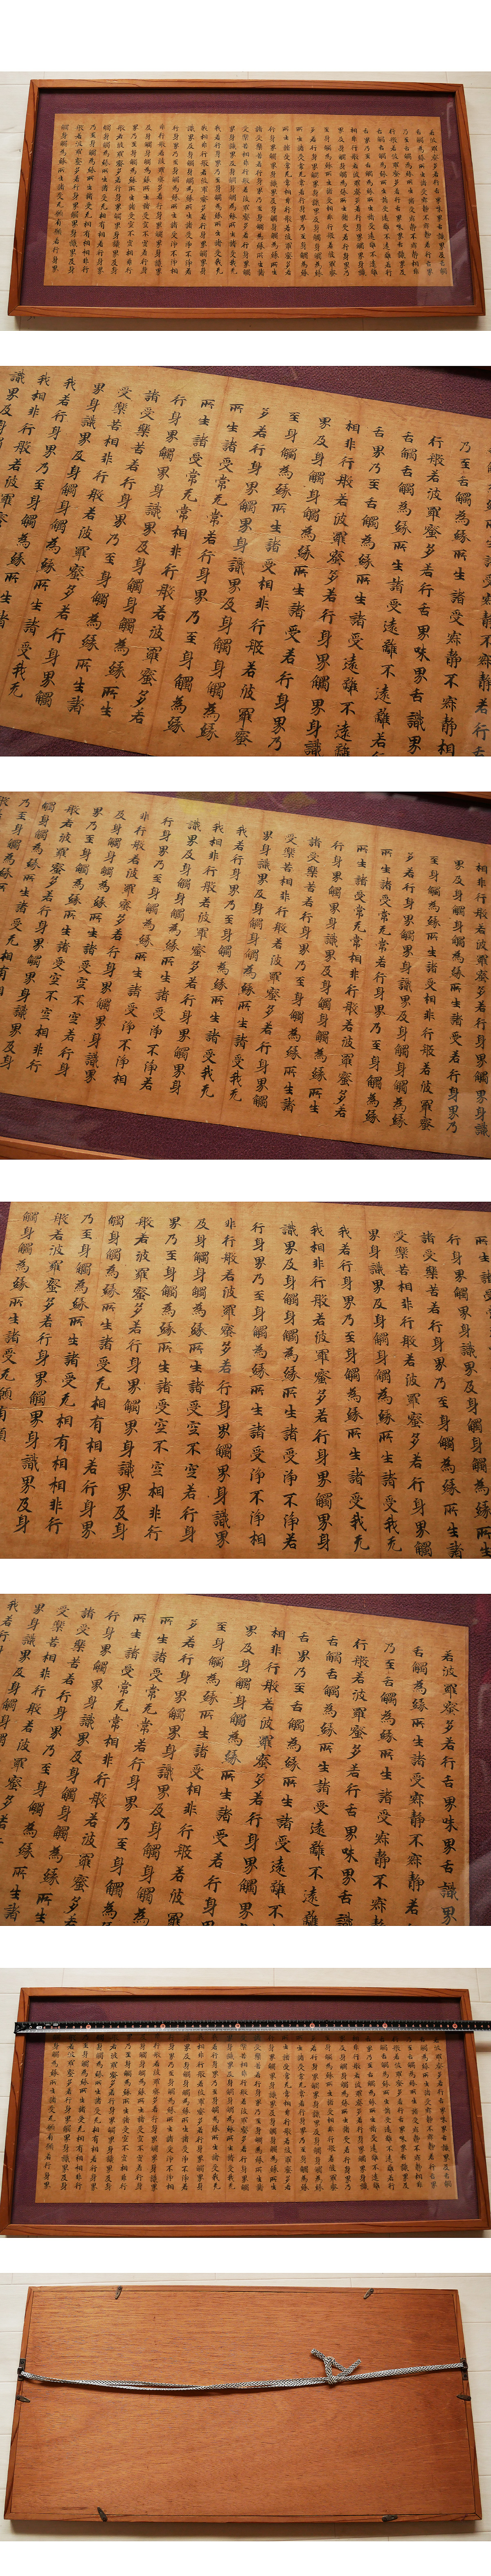 若波羅蜜多若行舌界味界舌識界及舌觸
舌觸為緣所生諸受寂靜不寂靜若行舌界
乃至舌觸為緣所生諸受寂靜不寂靜相非
行般若波羅蜜多若行舌界味界舌識界及
舌觸舌觸為緣所生諸受遠離不遠離若行
舌界乃至舌觸為緣所生諸受遠離不遠離
相非行般若波羅蜜多若行身界觸界身識
界及身觸身觸為緣所生諸受若行身界乃
至身觸為緣所生諸受相非行般若波羅蜜
多若行身界觸界身識界及身觸身觸為緣
所生諸受常无常若行身界乃至身觸為緣
所生諸受常无常相非行般若波羅蜜多若
行身界觸界身識界及身觸身觸為緣所生
諸受樂苦若行身界乃至身觸為緣所生諸
受樂苦相非行般若波羅蜜多若行身界觸
界身識界及身觸身觸為緣所生諸受我无
我若行身界乃至身觸為緣所生諸受我无
我相非行般若波羅蜜多若行身界觸界身
識界及身觸身觸為緣所生諸受淨不淨若
行身界乃至身觸為緣所生諸受淨不淨相
非行般若波羅蜜多若行身界觸界身識界
及身觸身觸為緣所生諸受空不空若行身
界乃至身觸為緣所生諸受空不空相非行
般若波羅蜜多若行身界觸界身識界及身
觸身觸為緣所生諸受无相有相若行身界
乃至身觸為緣所生諸受无相有相相非行
般若波羅蜜多若行身界觸界身識界及身
觸身觸為緣所生諸受无願有願若行身界